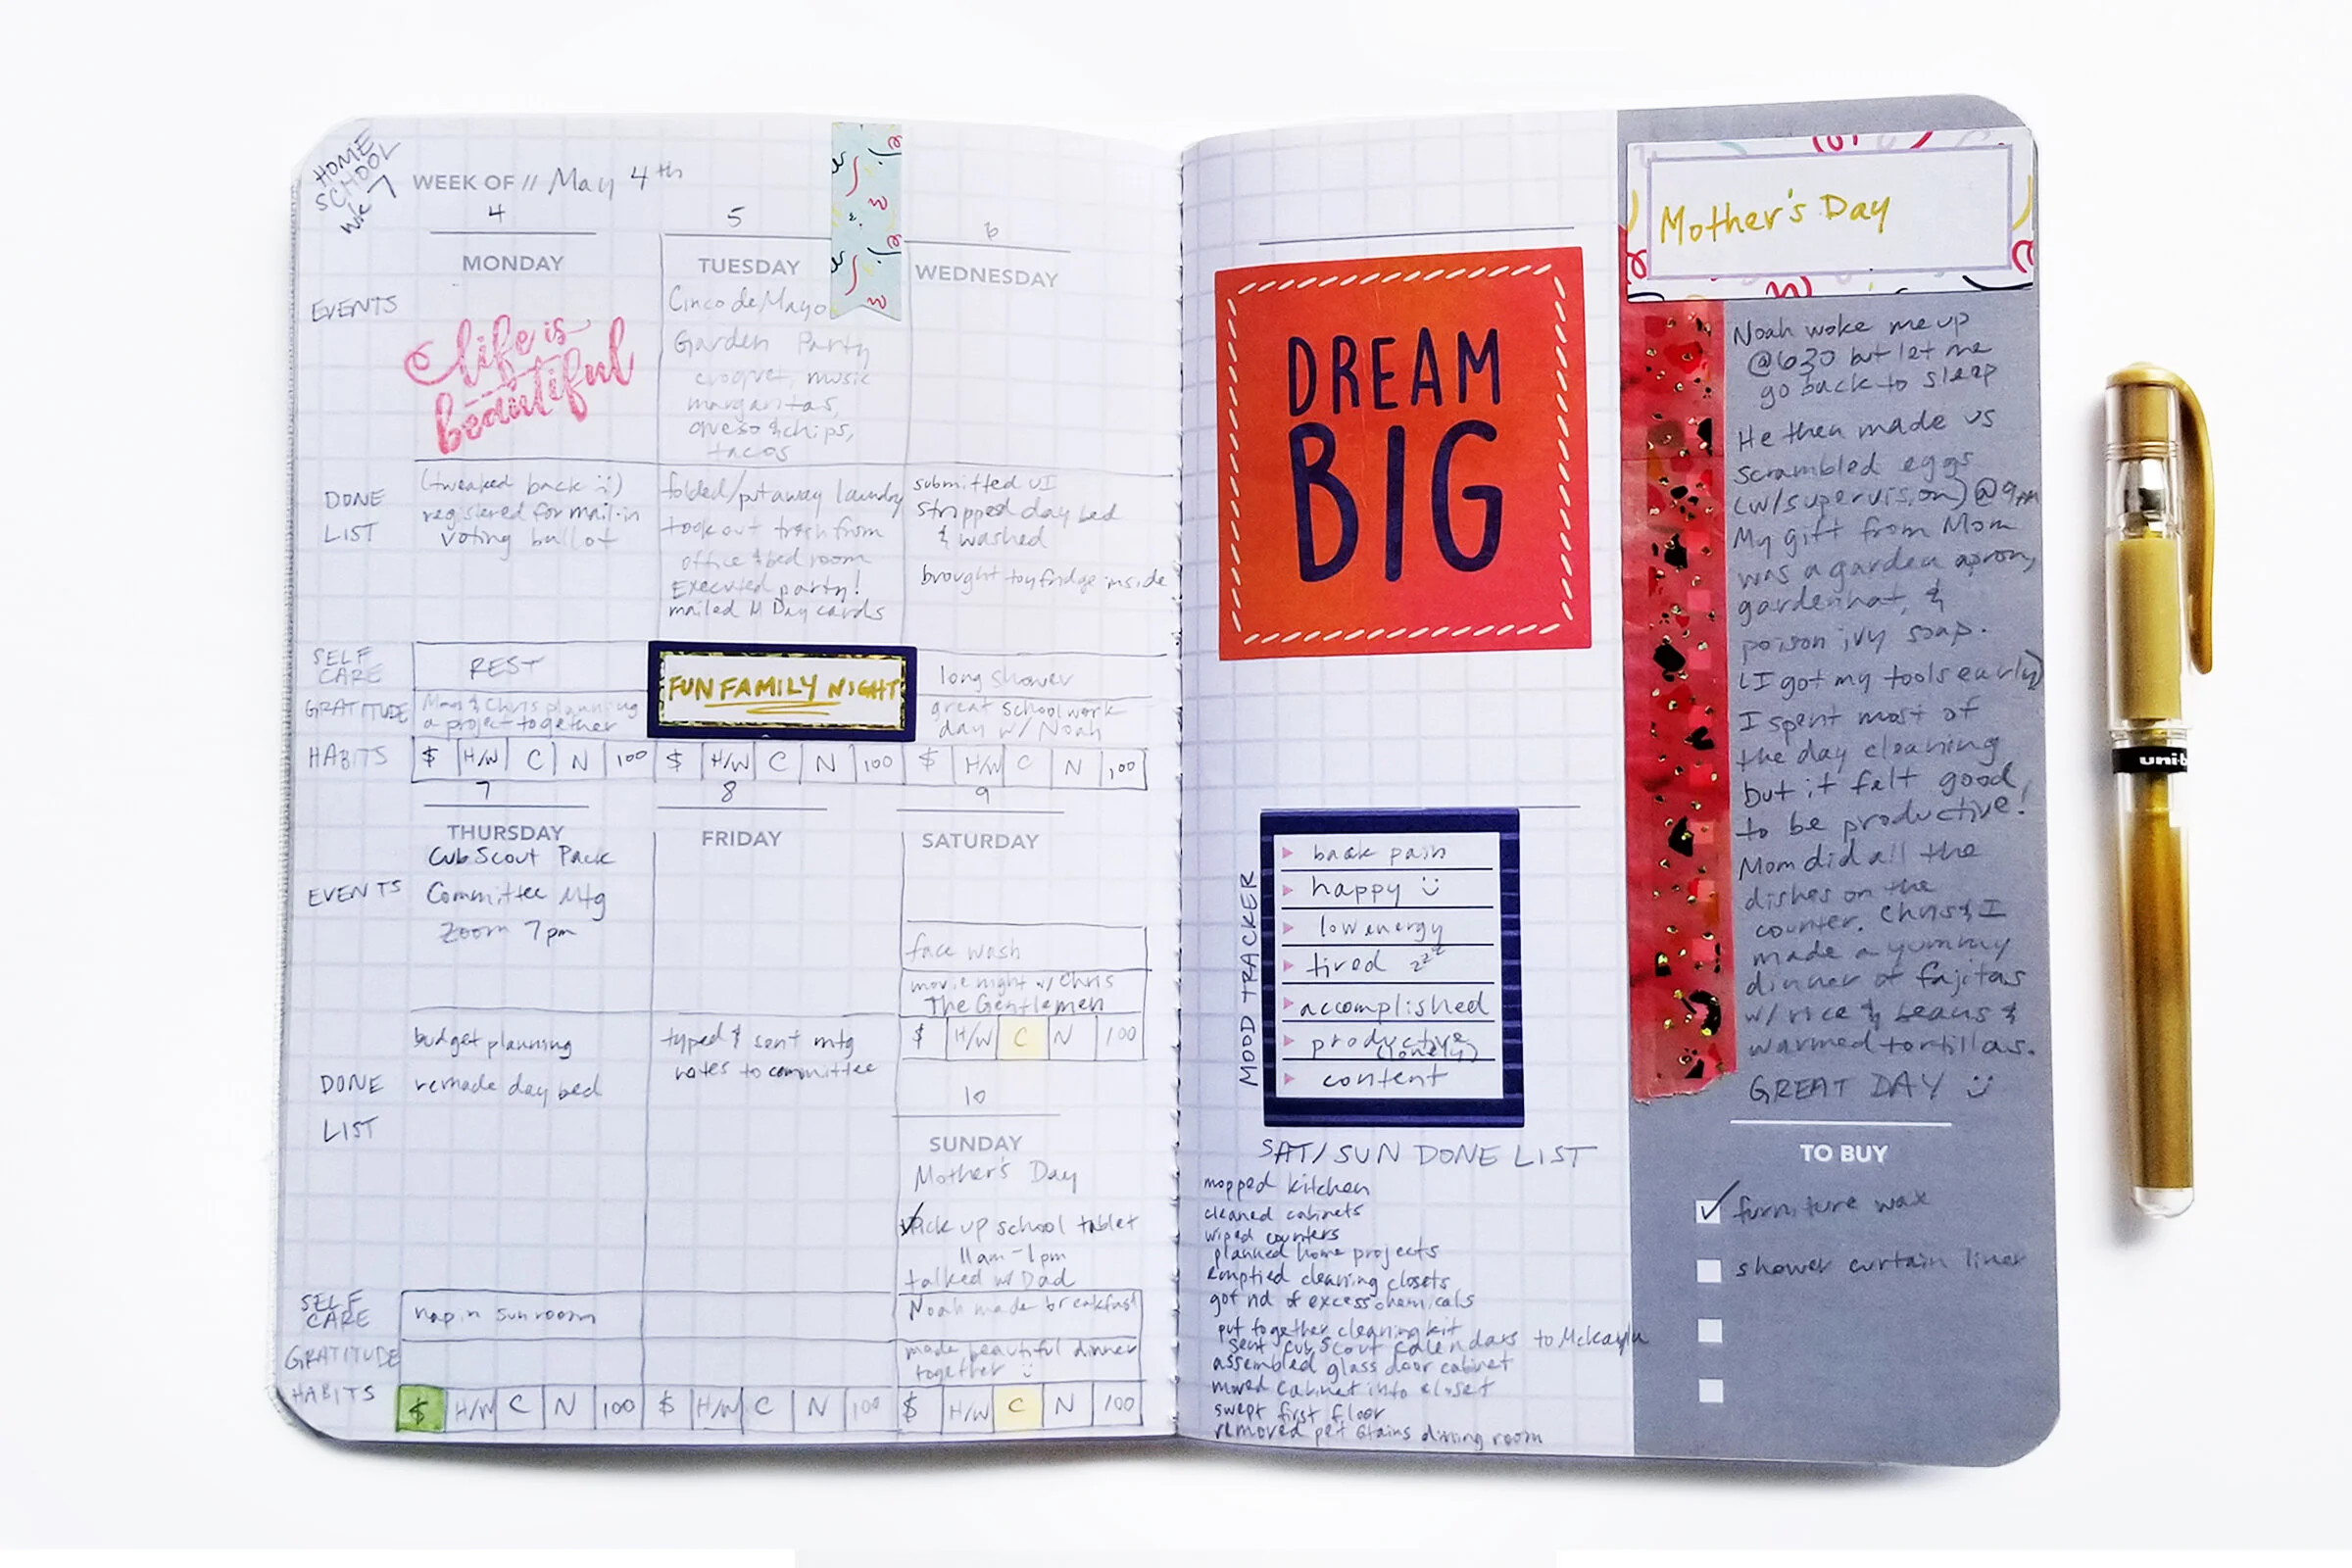 HOME
SCHOOL
WK 7
WEEK OF // May 4th
4
MONDAY
5
TUESDAY
6
WEDNESDAY
EVENTS
life is
beautiful
Cinco de Mayo
Garden Party
croquet, music
margaritas,
queso & chips,
tacos
DONE
LIST
(tweaked back :()
registered for mail-in
voting ballot
folded/put away laundry
took out trash from
office & bed room
Executed party!
mailed M Day cards
submitted UI
stripped day bed
& washed
brought toy fridge inside
SELF
CARE
REST
FUN FAMILY NIGHT
long shower
GRATITUDE
Mom & Chris planning
a project together
great schoolwork
day w/ Noah
HABITS
$ H/W C N 100
$ H/W C N 100
$ H/W C N 100
7
THURSDAY
8
FRIDAY
9
SATURDAY
EVENTS
Cub Scout Pack
Committee Mtg
Zoom 7pm
face wash
movie night w/ Chris
The Gentlemen
$ H/W C N 100
DONE
LIST
budget planning
remade day bed
typed & sent mtg
notes to committee
10
SUNDAY
Mother's Day
Pick up school tablet
11am-1pm
talked w/ Dad
SELF
CARE
nap in sunroom
Noah made breakfast
GRATITUDE
made beautiful dinner
together
HABITS
$ H/W C N 100
$ H/W C N 100
$ H/W C N 100
DREAM
BIG
MOOD TRACKER
back pain
happy
low energy
tired zzz
accomplished
productive
(lonely)
content
SAT/SUN DONE LIST
mopped kitchen
cleaned cabinets
wiped counters
planned home projects
emptied cleaning closets
got rid of excess chemicals
put together cleaning kit
sent Cub Scout calendars to McKayla
assembled glass door cabinet
moved cabinet into closet
swept first floor
removed pet stains dining room
Mother's Day
Noah woke me up
@630 but let me
go back to sleep
He then made us
scrambled eggs
(w/supervision) @ 9AM
My gift from Mom
was a garden apron,
garden hat, &
poison ivy soap.
(I got my tools early)
I spent most of
the day cleaning
but it felt good
to be productive!
Mom did all the
dishes on the
counter. Chris & I
made a yummy
dinner of fajitas
w/ rice & beans &
warmed tortillas.
GREAT DAY
TO BUY
furniture wax
shower curtain liner
uni-b